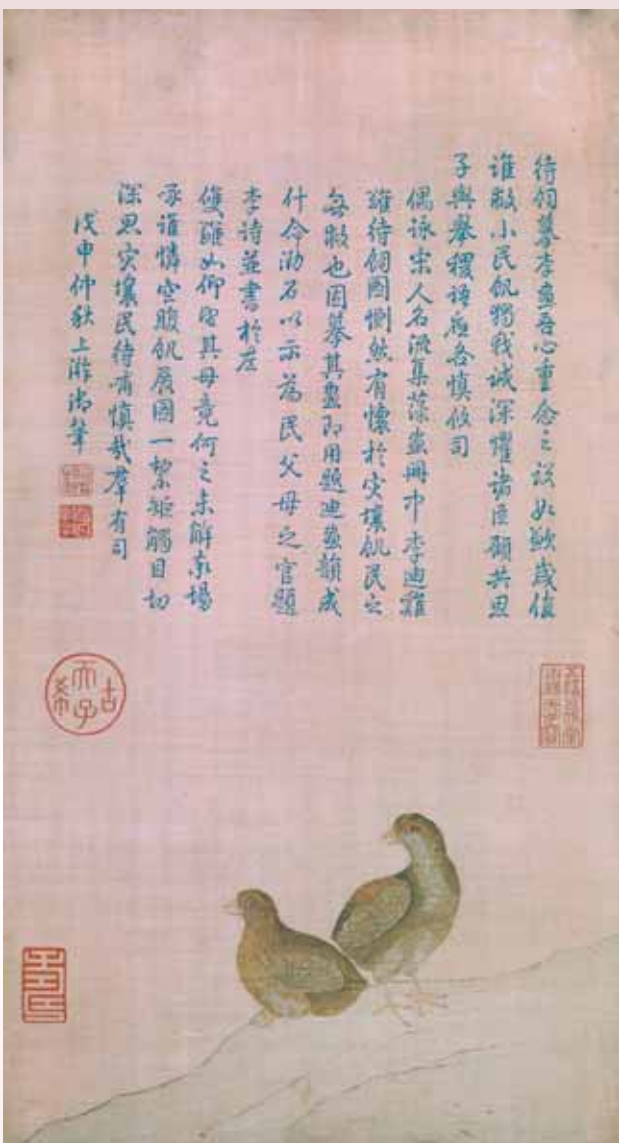 待飼摹李畫吾心重念之設如歉歲值
誰救小民飢獨我誠深懼諸臣願共思
子輿舉稷語應各慎攸司
偶詠宋人名流集藻畫冊中李迪雞
雛待飼圖惻然有懷於災壤飢民之
無救也因摹其畫即用題迪畫韻成
什命泐石以示為民父母之官題
李詩並書於左
雙雛如仰望其母竟何之未解豪場
啄誰憐空腹飢展圖一絜矩觸目切
深思災壤民待哺慎哉群有司
戊申仲秋上澣御筆
古希天子